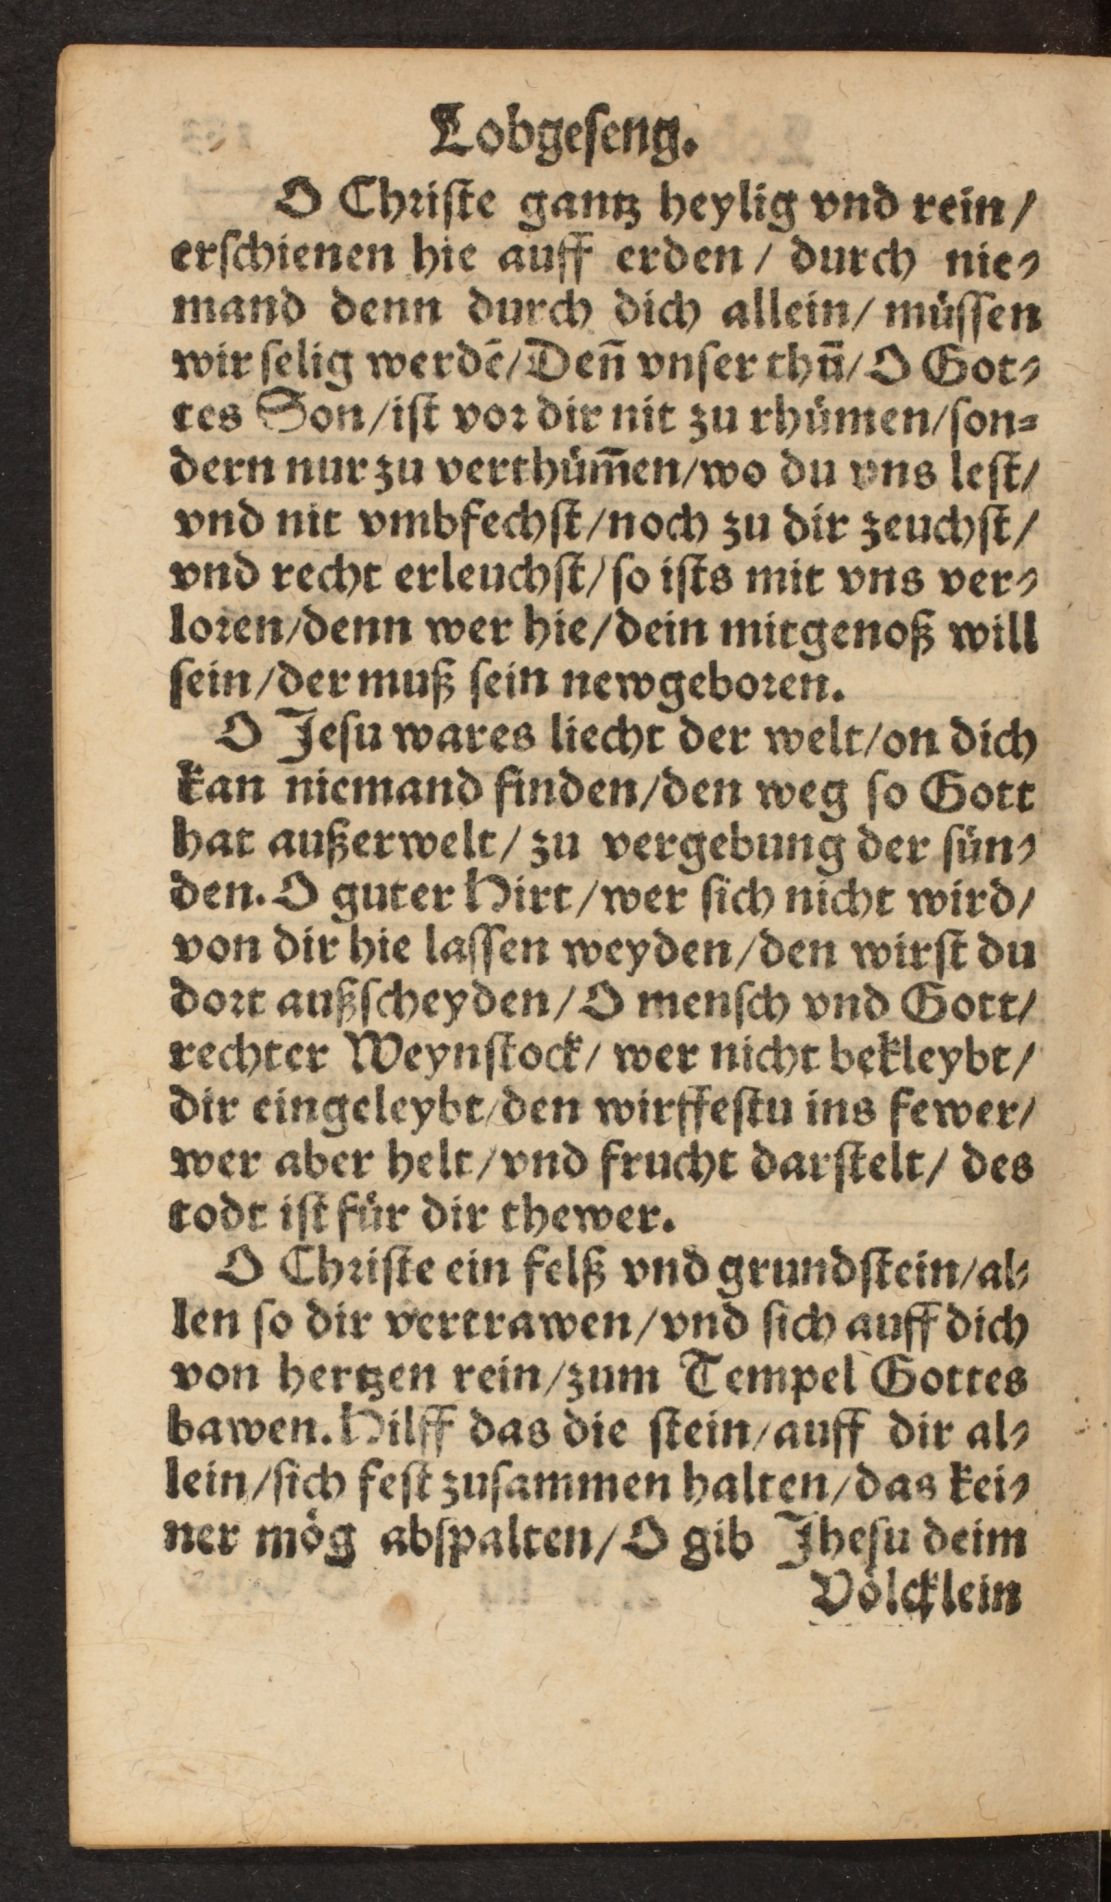 Lobgeseng.
O Christe gantz heylig vnd rein/
erschienen hie auff erden/ durch nie-
mand denn durch dich allein/ müssen
wir selig werdē/ Deñ vnser thū/ O Got-
tes Son/ ist vor dir nit zu rhümen/ son-
dern nur zu verthüm̄en/ wo du vns lest/
vnd nit vmbfechst/ noch zu dir zeuchst/
vnd recht erleuchst/ so ists mit vns ver-
loren/ denn wer hie/ dein mitgenoß will
sein/ der muß sein newgeboren.
O Jesu wares liecht der welt/ on dich
kan niemand finden/ den weg so Gott
hat außerwelt/ zu vergebung der sün-
den. O guter Hirt/ wer sich nicht wird/
von dir hie lassen weyden/ den wirst du
dort außscheyden/ O mensch vnd Gott/
rechter Weynstock/ wer nicht bekleybt/
dir eingeleybt/ den wirffestu ins fewer/
wer aber helt/ vnd frucht darstelt/ des
todt ist für dir thewer.
O Christe ein felß vnd grundstein/ al-
len so dir vertrawen/ vnd sich auff dich
von hertzen rein/ zum Tempel Gottes
bawen. Hilff das die stein/ auff dir al-
lein/ sich fest zusammen halten/ das kei-
ner mög abspalten/ O gib Jhesu deim
Völcklein